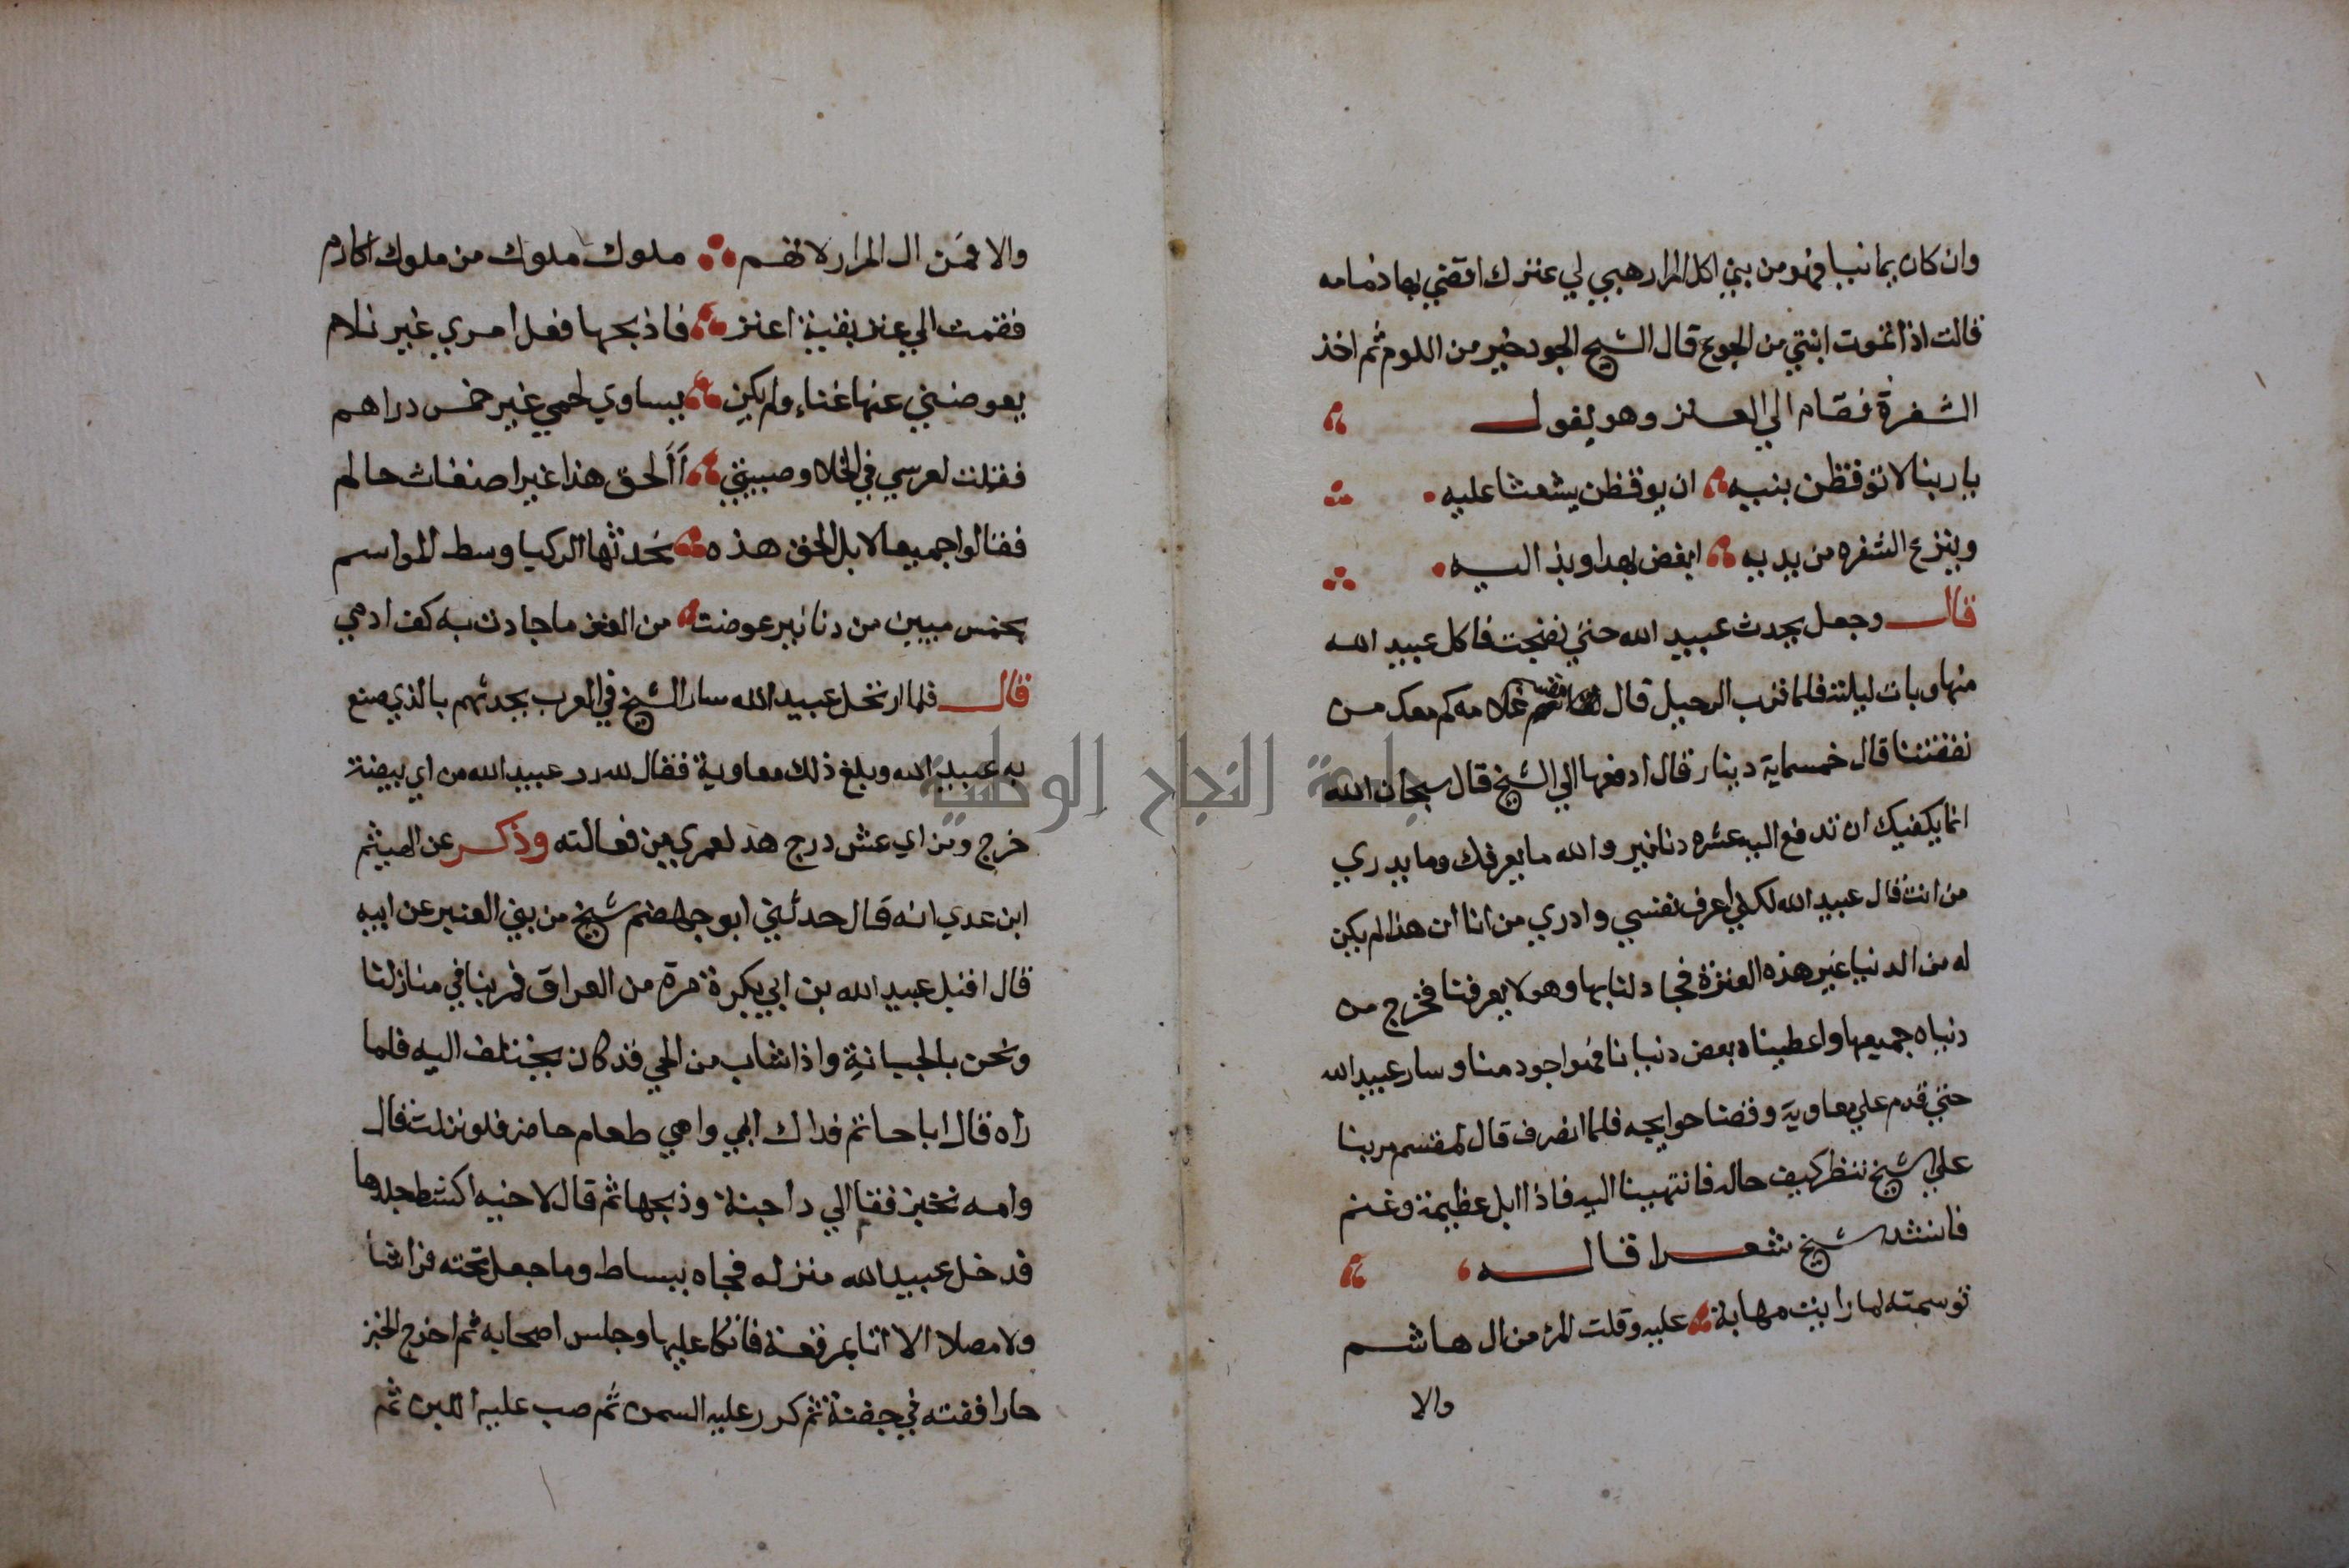 وان كان يمانيا فهو من بني اكل المرار هبي لي عنزك اقضي بها ذمامه
قالت اذا تموت ابنتي من الجوع قال الشيخ الجود خير من اللوم ثم اخذ
الشفرة فقام الي العنز وهو يقول
يا ربنا لا توقظن بنيه ان يوقظن يشعثا عليه
وينزع الشفره من يديه ابغض بهدا وبذا اليه
قال وجعل يحدث عبيد الله حتي نضجت فاكل عبيد الله
منها وبات ليلته فلما قرب الرحيل قال غلامه كم معك من
نفقتنا قال خمسماية دينار قال ادفعها الي الشيخ قال سبحان الله
انما يكفيك ان تدفع اليه عشره دنانير والله ما يعرفك وما يدري
من انت قال عبيد الله لكني اعرف نفسي وادري من انا ان هذا لم يكن
له من الدنيا غير هذه العنزة فجاد لنا بها وهو لا يعرفنا فخرج من
دنياه جميعها واعطيناه بعض دنيانا فهو اجود منا وسار عبيد الله
حتي قدم علي معاوية وقضا حوايجه فلما انصرف قال لمقسم مر بنا
علي الشيخ ننظر كيف حاله فانتهينا اليه فاذا ابل عظيمة وغنم
فانشد شيخ شعرا قاله
توسمته لما رايت مهابة عليه وقلت المرء من ال هاشم
والا
والا فمن ال المرار لانهم ملوك ملوك من ملوك اكارم
فقمت الي عنز بقية اعنز فاذبحها فعل امري غير نادم
يعوضني عنها غناء ولم يكن يساوي لحمي غير خمس دراهم
فقلت لعرسي في الخلا وصبيتي أألحق هذا غير اضغاث حالم
فقالوا جميعا لا بل الحق هذه تحدثها الركبا وسط المواسم
بخمس ميين من دنانير عوضت من العنز ما جادت به كف ادمي
قال فلما ارتحل عبيد الله سار الشيخ في العرب يحدثهم بالذي صنع
به عبيد الله وبلغ ذلك معاوية فقال لله در عبيد الله من اي بيضة
خرج ومن اي عش درج هد لعمري من فعالته وذكر عن الهيثم
ابن عدي انه قال حدثني ابو جهضم شيخ من بني العنبر عن ابيه
قال اقبل عبيد الله بن ابي بكرة مرة من العراق فمر بنا في منازلنا
ونحن بالجبانة واذا شاب من الحي قد كان يختلف اليه فلما
راه قال ابا حاتم فداك ابي وامي طعام حاضر فلو نزلت قال
وامه تخبز فقام الي داجنة وذبحها ثم قال لاخيه اكشط جلدها
فدخل عبيد الله منزله فجاه ببساط وما جعل تحته فراشا
ولا مصلا الا اتا بمرفقة فاتكا عليها وجلس اصحابه ثم اخرج الخبز
حارا ففته في جفنة ثم كرر عليه السمن ثم صب عليه اللبن ثم
جامعة النجاح الوطنية